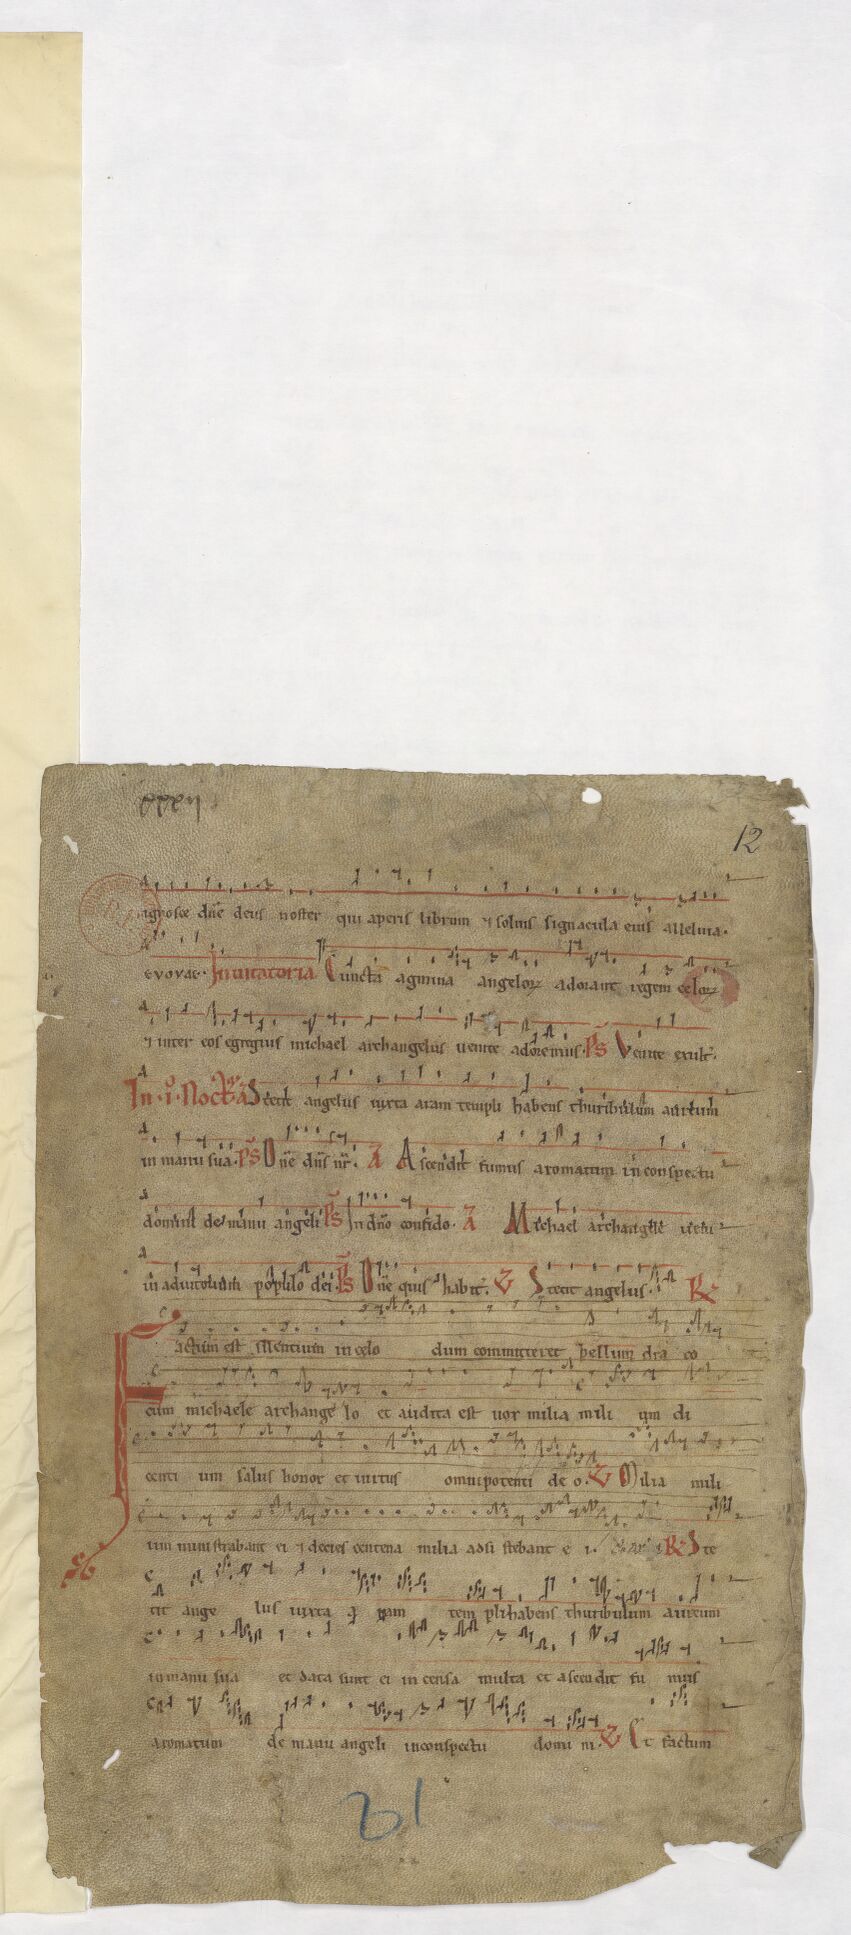 12
ignosce dñe deus noster qui aperis librum ⁊ soluis signacula eius alleluia.
evovae. Inuitatoria Cuncta agmina angeloꝝ adorant regem celoꝝ
⁊ inter eos egregius michael archangelus uenite adoremus. P̄s Venite exult̄.
In .i. Noct̄ A Stetit angelus iuxta aram templi habens thuribulum aureum
in manu sua. P̄s Dñe dñs nr̄. A Ascendit fumus aromatum in conspectu
domini de manu angeli P̄s In dño confido. A Michael archangele ueni
in adiutorium populo dei. P̄s Dñe quis habit̄. V Stetit angelus. R
Factum est silentium in celo dum committeret bellum dra co
cum michaele archange lo et audita est uox milia mili um di
centi um salus honor et uirtus omnipotenti de o. V Milia mili
um ministrabant ei ⁊ decies centena milia adsi stebant e i. R Ste
tit ange lus iuxta a ram tem pli habens thuribulum aureum
in manu sua et data sunt ei in censa multa et ascendit fu mus
aromatum de manu angeli in conspectu domi ni. V Et factum